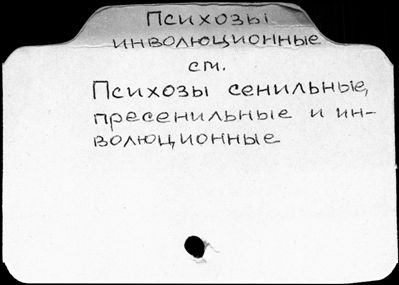 Психозы
инволюционные
см.
Психозы сенильные,
пресенильные и ин-
волюционные